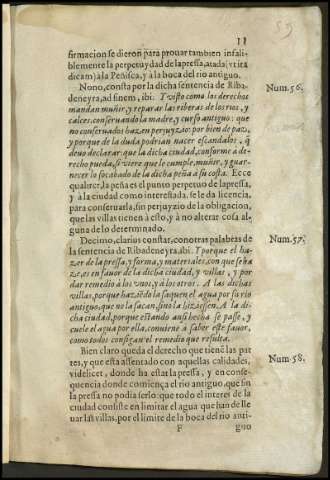 59
11
firmacion se dieron para prouar tambien infali-
blemente la perpetuydad de la pressa, atada (vt ita
dicam) à la Peñisca, y à la boca del rio antiguo.
Nono, consta por la dicha sentencia de Riba-
deneyra, ad finem, ibi. Y visto como los derechos
mandan muñir, y reparar las riberas de los rios, y
calces, conseruando la madre, y curso antiguo: que
no conseruados haz en perjuyzio: por bien de paz,
y porque de la duda podrian nacer escandalos, q̃
deuo declarar: que la dicha ciudad, conforme à de-
recho pueda, si viere que le cumple, muñir, y guar-
necer lo socabado de la dicha peña à su costa. Ecce
qualiter, la peña es el punto perpetuo de la pressa,
y à la ciudad como interessada, se le da licencia,
para conseruarla, sin perjuyzio de la obligacion,
que las villas tienen à esto, y à no alterar cosa al-
guna de lo determinado.
Decimo, clarius constat, con otras palabras de
la sentencia de Ribadeneyra, ibi. Y porque el ha-
zer de la pressa, y forma, y materiales, con que se ha
ze, es en fauor de la dicha ciudad, y villas, y por
dar remedio à los vnos, y à los otros. A las dichas
villas, porque haziẽdola saquen el agua por su rio
antiguo, que no la sacan, sino la hiziessen. A la di-
cha ciudad, porque estando ansi hecha se passe, y
cuele el agua por ella, conuiene à saber este fauor,
como todos consigan el remedio que resulta.
Bien claro queda el derecho que tienẽ las par
tes, y que esta assentado con aquellas calidades,
videlicet, donde ha estar la pressa, y en conse-
quencia donde comiença el rio antiguo, que sin
la pressa no podia serlo: que todo el interes de la
ciudad consiste en limitar el agua que han de lle
uar las villas, por el limite de la boca del rio anti-
F
guo
Num. 56.
Num. 57.
Num. 58.